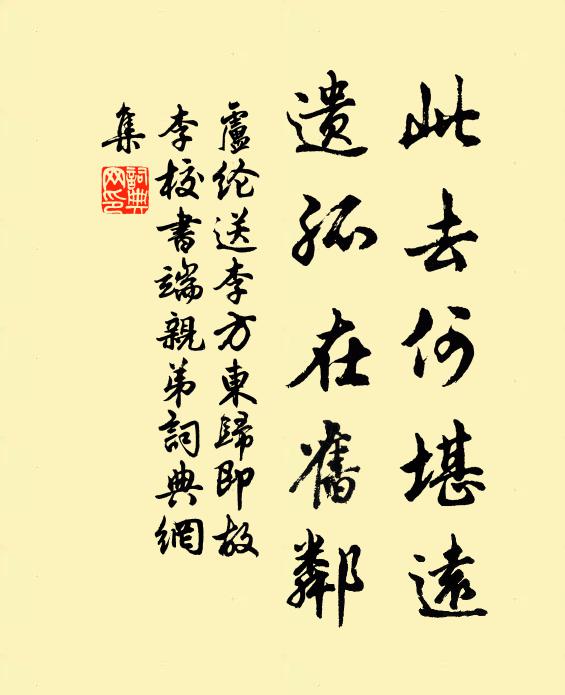 此去何堪遠
遺孤在舊鄰
盧纶送李方東歸即故
李校書端親弟詞典網
集
詞典
网印